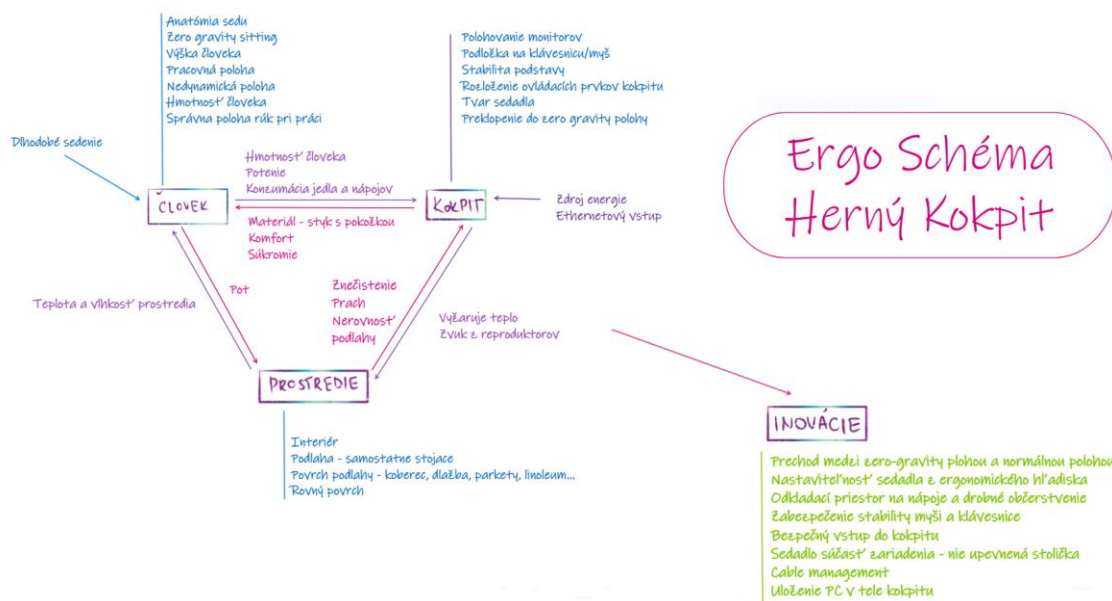 Anatómia sedu
Zero gravity sitting
Výška človeka
Pracovná poloha
Nedynamická poloha
Hmotnosť človeka
Správna poloha rúk pri práci
Polohovanie monitorov
Podložka na klávesnicu/myš
Stabilita podstavy
Rozloženie ovládacích prvkov kokpitu
Tvar sedadla
Preklopenie do zero gravity polohy
Ergo Schéma
Herný Kokpit
Dlhodobé sedenie
Hmotnosť človeka
Potenie
Konzumácia jedla a nápojov
ČLOVEK
KOKPIT
Zdroj energie
Ethernetový vstup
Materiál - styk s pokožkou
Komfort
Súkromie
Teplota a vlhkosť prostredia
Pot
Znečistenie
Prach
Nerovnosť
podlahy
Vyžaruje teplo
Zvuk z reproduktorov
PROSTREDIE
Interiér
Podlaha - samostatne stojace
Povrch podlahy - koberec, dlažba, parkety, linoleum...
Rovný povrch
INOVÁCIE
Prechod medzi zero-gravity plohou a normálnou polohou
Nastaviteľnosť sedadla z ergonomického hľadiska
Odkladací priestor na nápoje a drobné občerstvenie
Zabezpečenie stability myši a klávesnice
Bezpečný vstup do kokpitu
Sedadlo súčasť zariadenia - nie upevnená stolička
Cable management
Uloženie PC v tele kokpitu